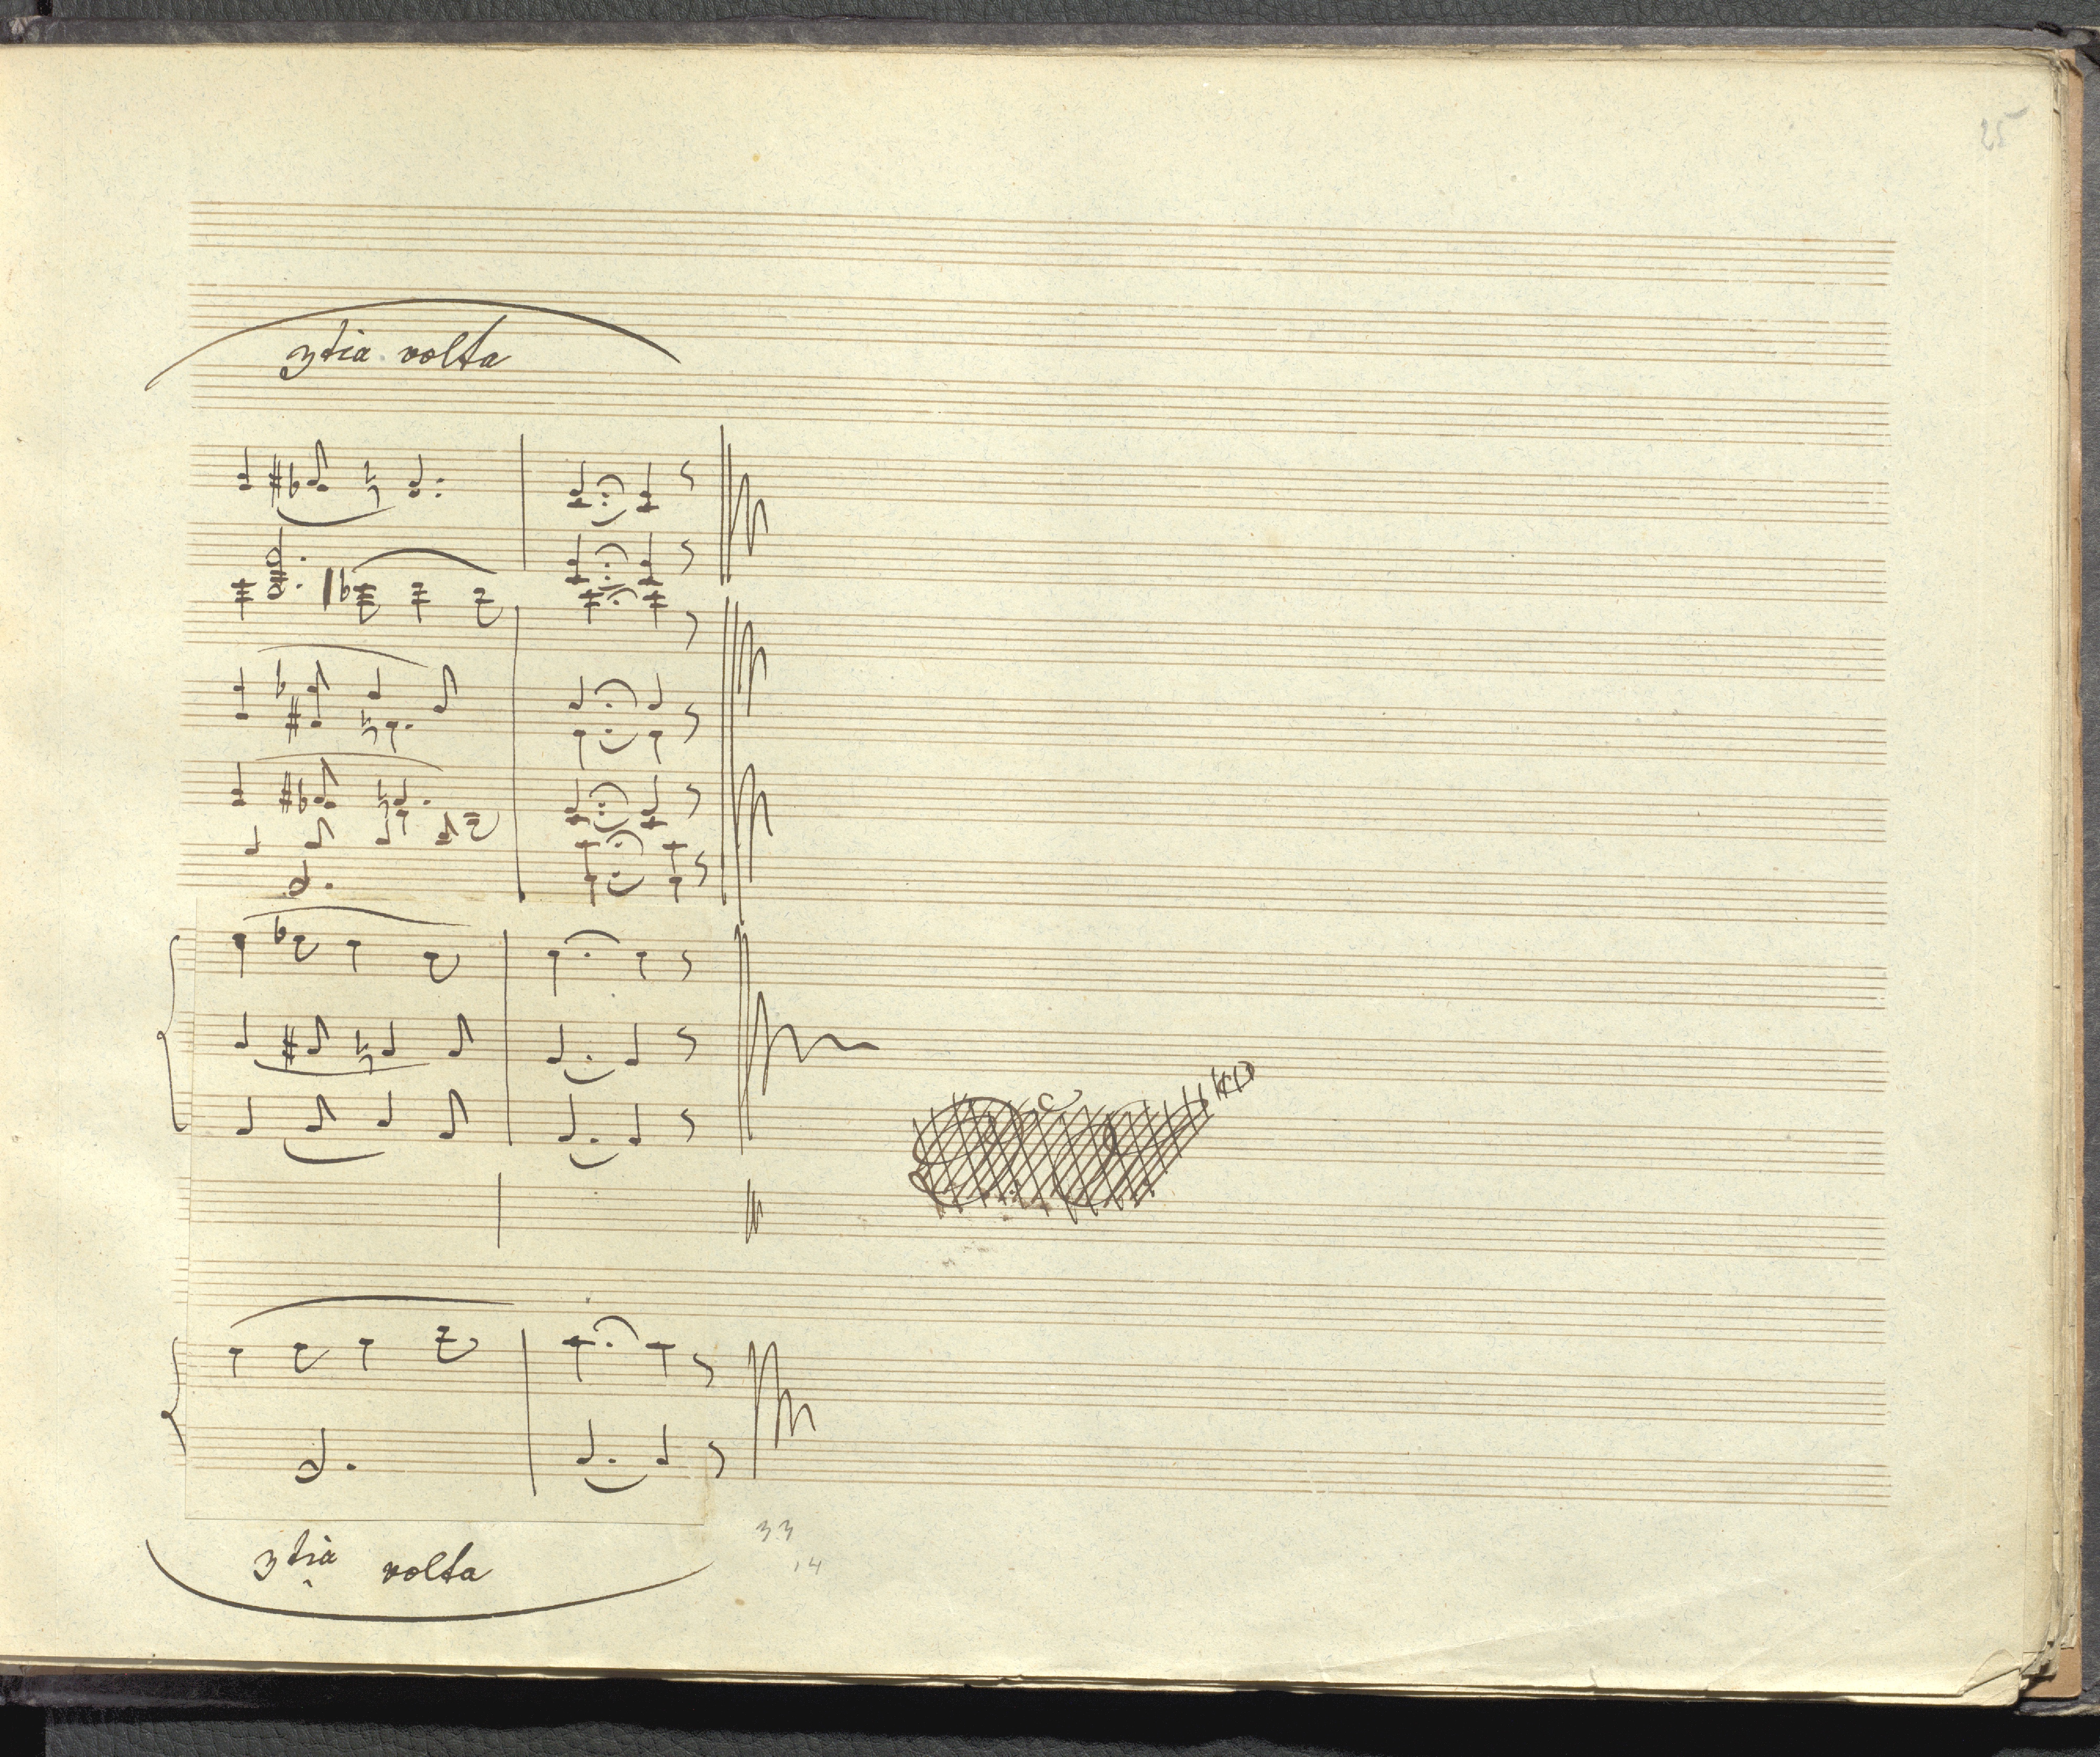 25
3tia volta
3tia volta
33
14